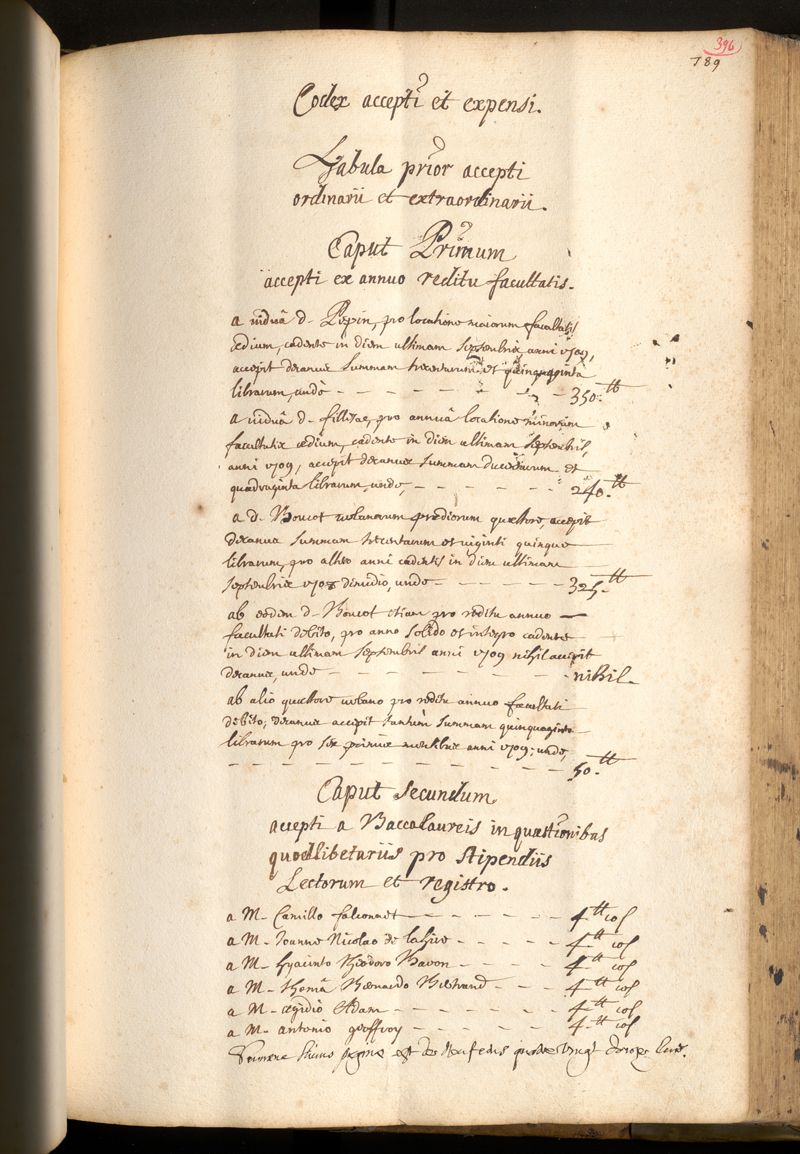 396
789
Codex accepti et expensi.
Tabula prior accepti
ordinarii et extraordinarii.
Caput Primum
accepti ex annuo reditu facultatis.
a viduâ d. Pepin, pro locatione maiorum facultatis
ædium, cadente in diem ultimam septembris anni 1709,
accepit decanus summam trecentarum et quinquaginta
librarum, unde - - - - - - - 350.tt
a viduâ d. fillieae, pro annuâ locatione minorum
facultatis ædium, cadente in diem ultimam septembris,
anni 1709, accepit decanus summam ducentarum et
quadraginta librarum, unde, - - - - - 240.tt
a d. Boucot urbanorum prædiorum quæstore, accepit
decanus summam trecentarum et viginti quinque
librarum, pro altero anni cadentis in diem ultimam
septembris 1708 dimidio, unde - - - - - 325.tt
ab eodem d. Boucot etiam pro reditu annuo
facultati debito, pro anno solido et integro cadente
in diem ultimam septembris anni 1709 nihil accepit
decanus, unde - - - - - - nihil.
ab alio quæstore urbano pro reditu annuo facultati
debito, decanus accepit tantùm summam quinquaginta
librarum pro sex primis mensibus anni 1709; unde,
- - - - - - - - - - 50.tt
Caput secundum
accepti a Baccalaureis in quæstionibus
quodlibetariis pro stipendiis
Lectorum et registro.
a M. Camillo falconnet - - - - 4tt 10s
a M. Joanne Nicolao de la hire - - - - 4tt 10s
a M. hyacinto theodoro Baron - - - - 4tt 10s
a M. thomâ Bernardo Bertrand - - - 4tt 10s
a M. ægidio Adam - - - - - 4tt 10s
a M. antonio geoffroy - - - - - 4tt 10s
est de neuf cens quatre vingt douze livres.